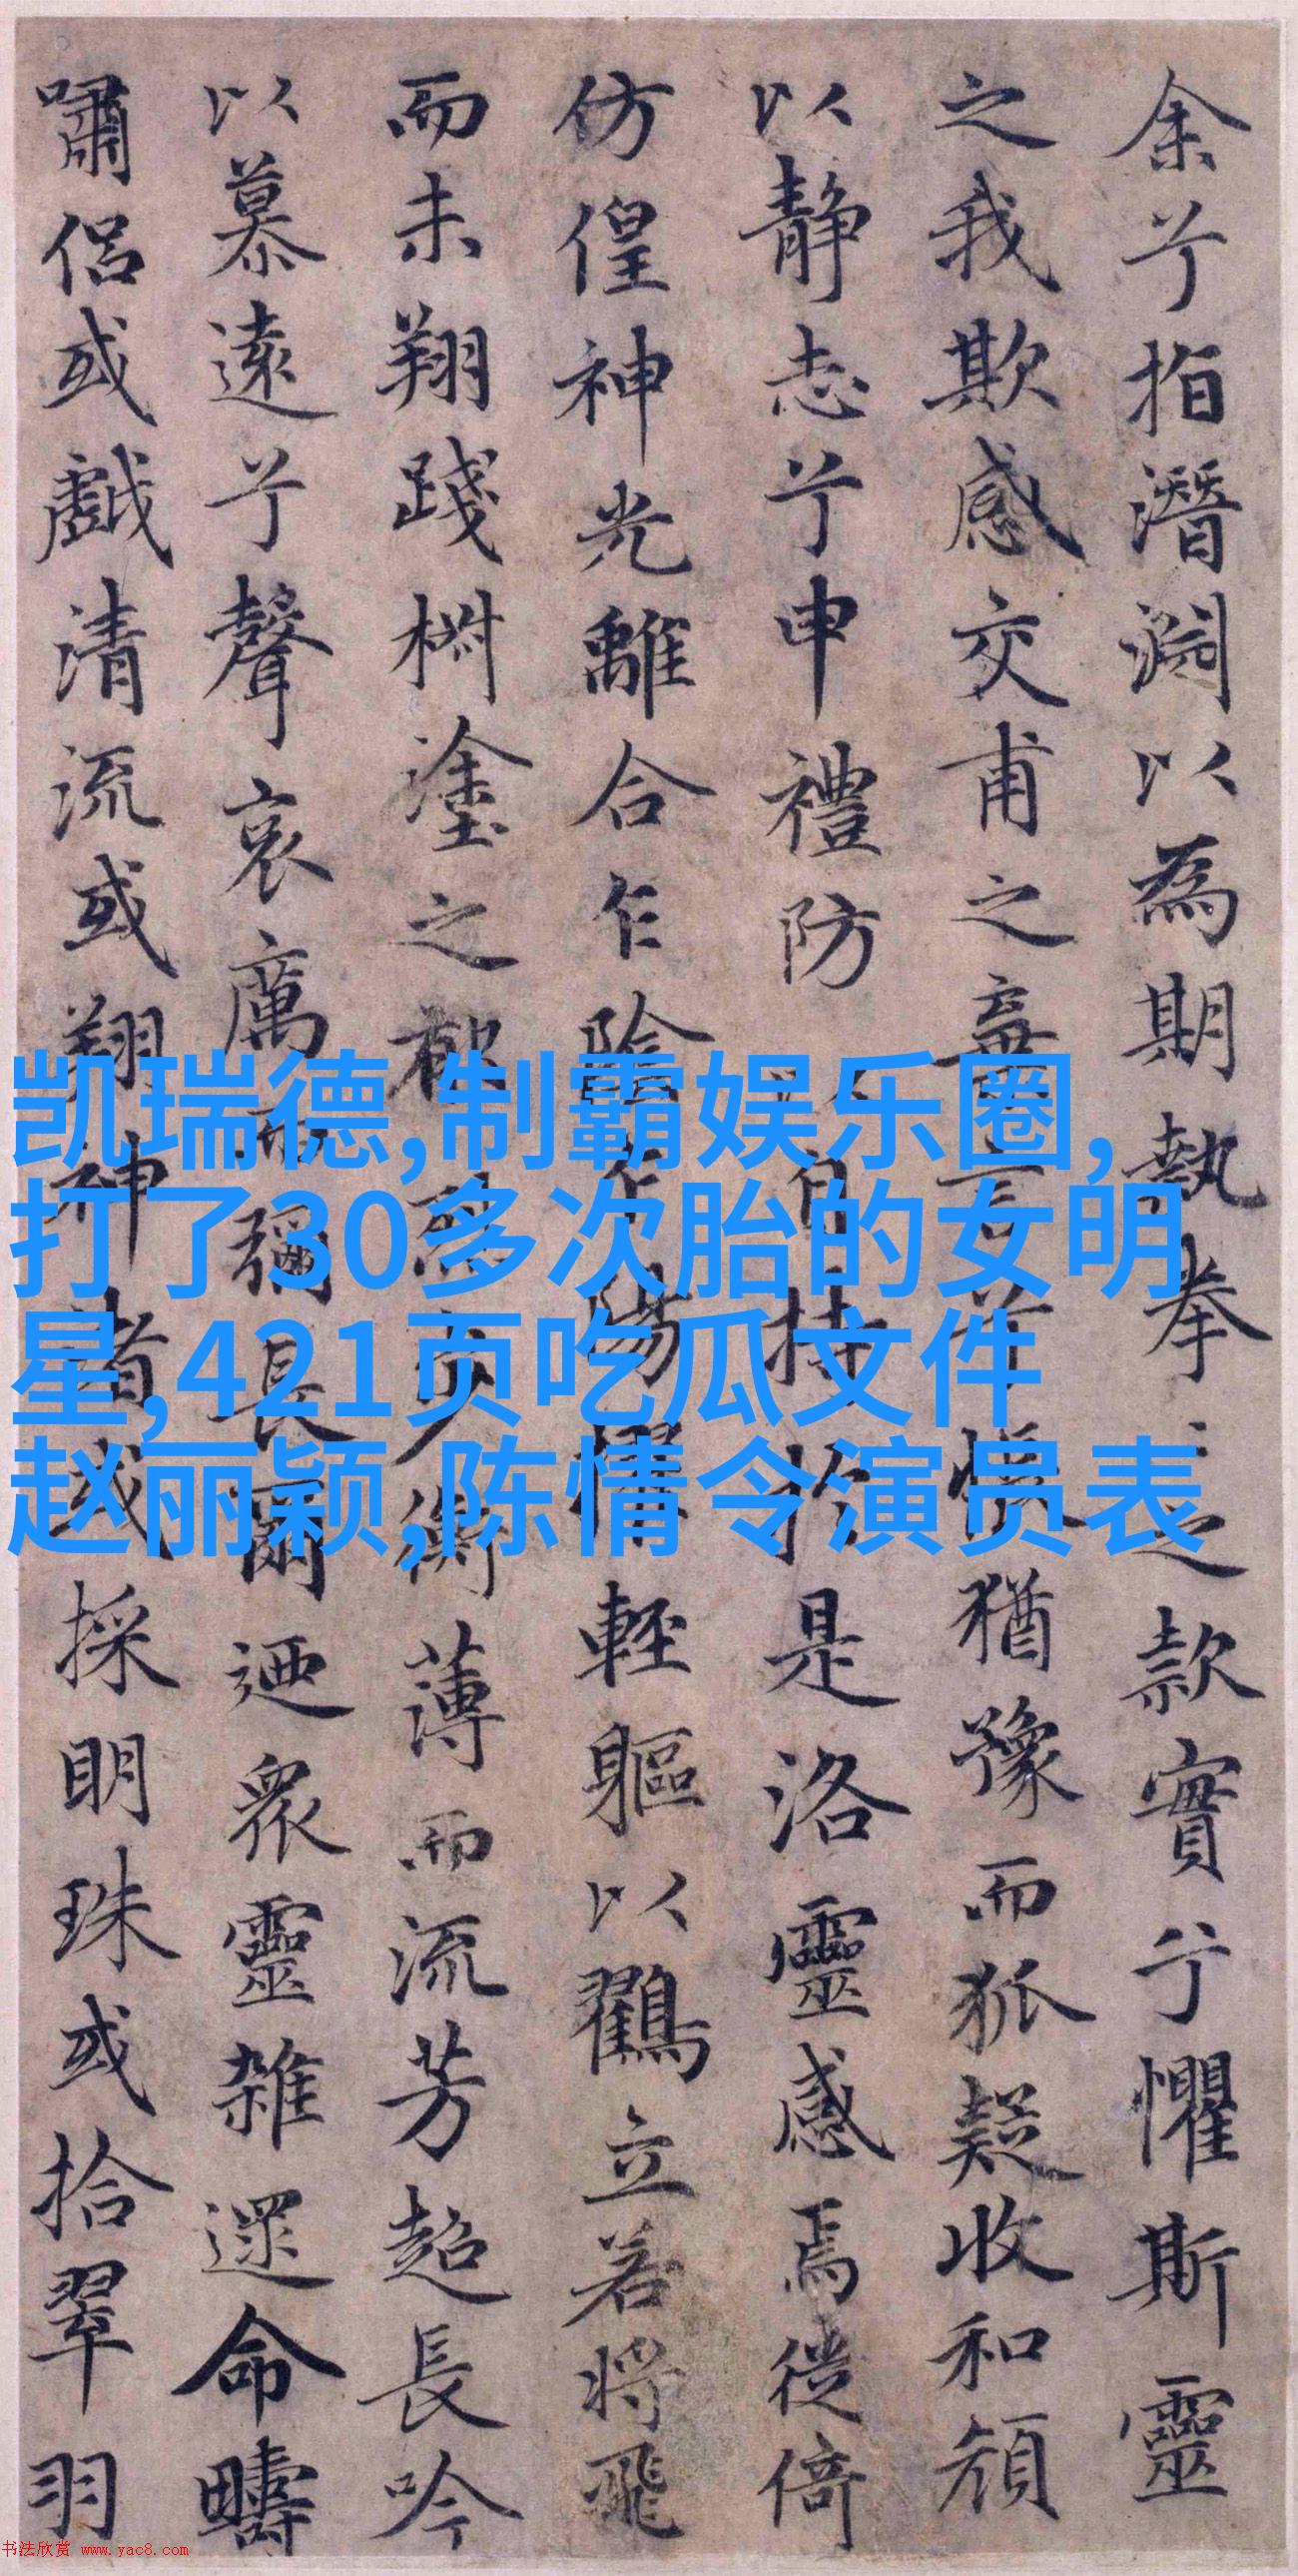 余兮指潛淵以為期執拳〻之款實兮懼斯靈
之我欺感交甫之棄言兮悵猶豫而狐疑收和顏
以靜志兮申禮防以自持於是洛靈感焉徙倚
仿偟神光離合乍陰乍陽擢輕軀以鸖立若將飛
而未翔踐椒塗之郁烈步衡薄而流芳超長吟
以慕遠兮聲哀厲而彌長爾迺眾靈雜遝命疇
嘯侶或戲清流或翔神渚或採明珠或拾翠羽
凯瑞德,制霸娱乐圈,
打了30多次胎的女明
星,421页吃瓜文件
赵丽颖,陈情令演员表
书法欣赏 www.yac8.com